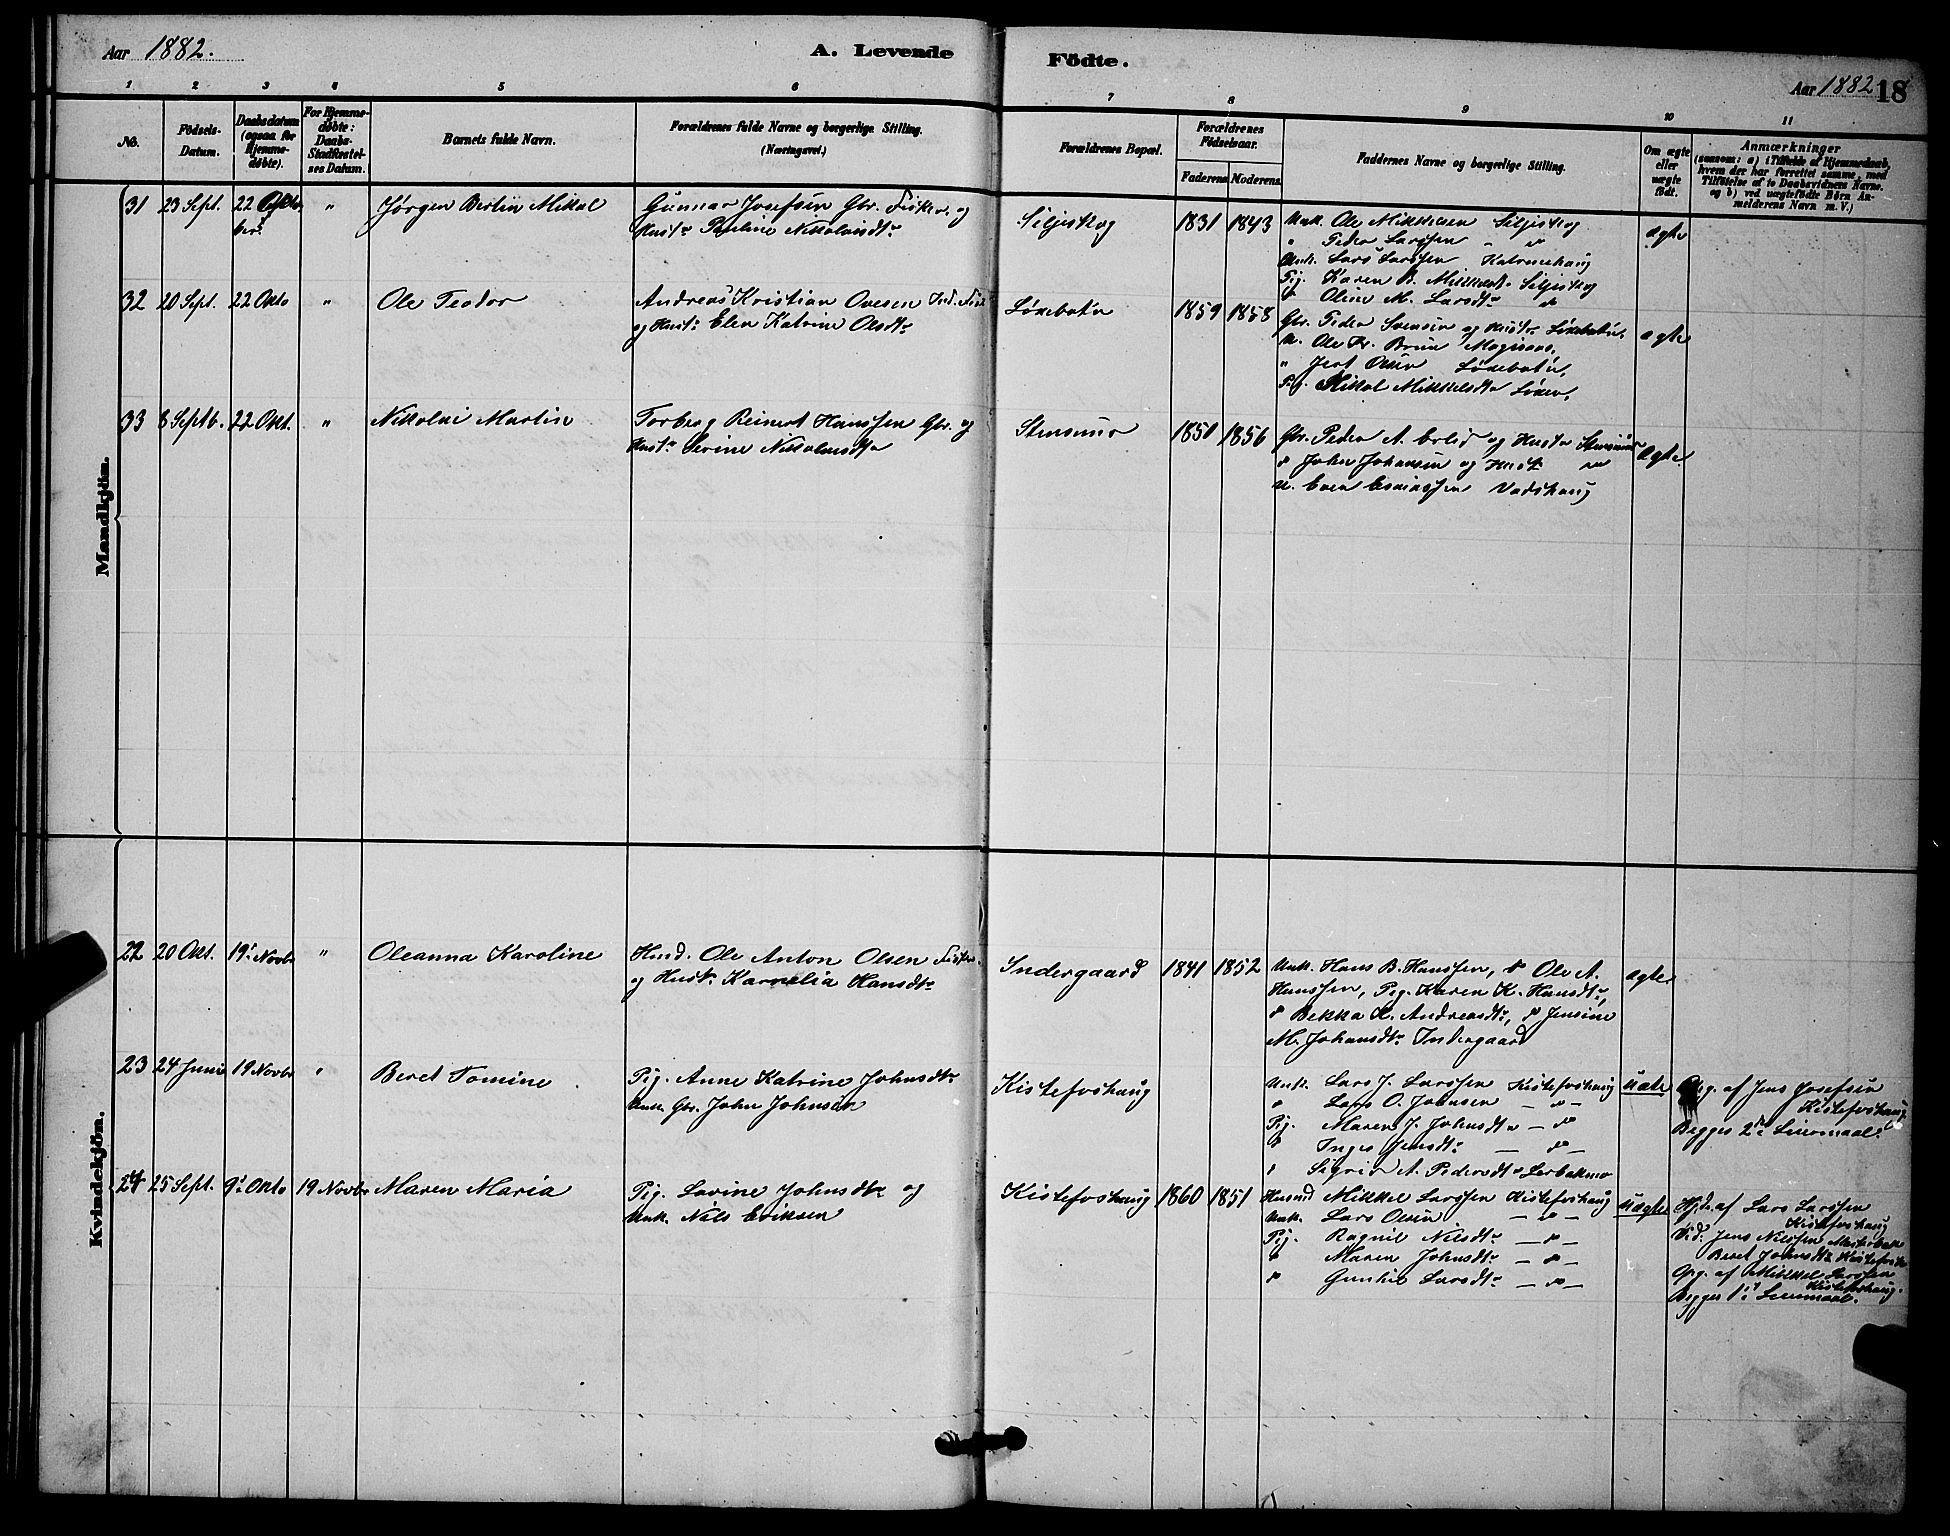 Aar 1882.
A. Levende
Födte.
Aar 1882
18
1 2 3 4 5 6 7 8 9 10 11
No.
Födsels-
Datum.
Daabsdatum
(ogsaa for
Hjemme-
døbte).
For Hjemme-
døbte:
Daabs-
Stadfæstel-
ses Datum.
Barnets fulde Navn.
Forældrenes fulde Navne og borgerlige Stilling.
(Næringsvei.)
Forældrenes Bopæl.
Forældrenes
Födselsaar.
Faderens Moderens.
Faddernes Navne og borgerlige Stilling.
Om ægte
eller
uægte
født.
Anmærkninger
(saasom: a) i Tilfælde af Hjemmedaab,
hvem der har forrettet samme, med
Tilføielse af to Daabsvidners Navne.
og b) ved uægtefødte Börn An-
melderens Navn m. V.)
Mandkjön.
31 23 Sept. 22 Okto
ber. " Jørgen Berlin Mikal
Gunnar Josefsen Gbr. Fisker og
Hustr Pauline Nikolaisdtr
Siljeskog 1831 1843
Unk. Ole Mikkelsen Siljeskog
" Peder Larssen " "
Unk. Lars Larssen Katrinehaug
Pig. Karen B. Mikkelsdtr Siljeskog
" Oline M. Larsdtr "
ægte
32 20 Sept. 22 Okto " Ole Teodor
Andreas Kristian Ovesen Ind. Fisk
og Hustr Elen Katrine Olsdtr
Löxebotn 1859 1858
Gbr. Peder Svensen og Hustr Löxebotn,
U. Ole Fr. Brun
" Jert Olsen Löxebotn,
Pig. Mikal Mikkelsdtr
ægte
33 8 Septb. 22 Okt. " Nikolai Martin
Torberg Reinert Hanssen Gbr. og
Hustr Serine Nikolaisdtr
Stensnur 1851 1856
Gbr. Peder A. og Hustr Stensnur
" John Johansen og Hust "
U. Even Esaiassen Vadshaug
ægte
Kvindekjön.
22 20 Okt. 19. Novbr " Oleanna Karoline
Husd. Ole Anton Olsen Fisker
og Hustr Karnelia Hansdtr
Indergaard 1841 1852
Unk. Hans B. Hanssen, " Ole A.
Hanssen, Pig. Karen K. Hansdtr,
" Bekka K. Andreasdtr, " Jensine
M. Johansdtr Indergaard
ægte
23 24 Juni 19 Novbr " Beret Tomine
Pig. Anne Katrine Johnsdtr
Unk. Gbr. John Johnsen
Kistefoshaug
Unk. Lars J. Larssen Kistefoshaug
" Lars O. Johnsen — " —
Pig. Maren J. Johnsdtr — "
" Inger Jensdtr — " —
" Sigrid A. Pedersdtr
uæte
Opg. af Jens Josefsen
Kistefoshaug
Begges 2det Leiermaal.
24 25 Sept. 9. Okto 19 Novbr Maren Maria
Pig. Lovine Johnsdtr og
Unk. Nils Eriksen
Kistefoshaug 1860 1851
Husmd Mikkel Larssen Kistefoshaug
Unk. Lars Olsen — " —
Pig. Ragnil Nilsdtr — " —
" Maren Johnsdtr — " —
" Gunhil Larsdtr — " —
uægte
Hjd. af Lars Larssen
Kistefoshaug
Vid. Jens Nilssen
Beret Johnsdtr Kistefos
Opg. af Mikkel Larssen
Kistefoshaug.
Begges 1ste Leiermaal.